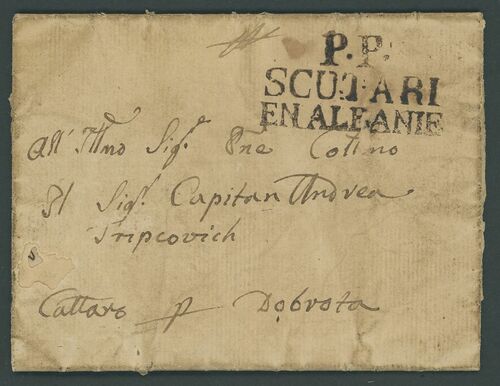 P.P.
SCUTARI
EN ALBANIE
All' Illmo Sig.r Pne Collmo
Il Sig.r Capitan Andrea
Tripcovich
Cattaro p Dobrota